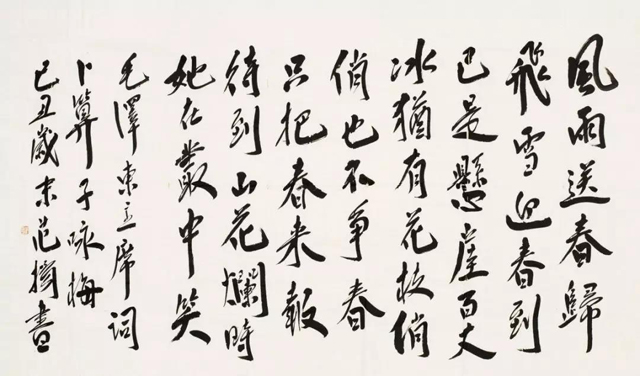 風雨送春歸
飛雪迎春到
已是懸崖百丈
冰猶有花枝俏
俏也不争春
只把春来報
待到山花爛時
她在叢中笑
毛澤東主席詞
卜算子咏梅
己丑歲末范書